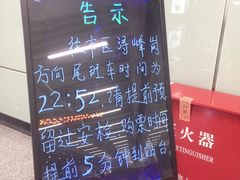 告示
往市区浔峰岗
方向尾班车时间为
22:52,请提前预
留过安检购票时间
提前5分钟到站台
火器
EXTINGUISHER